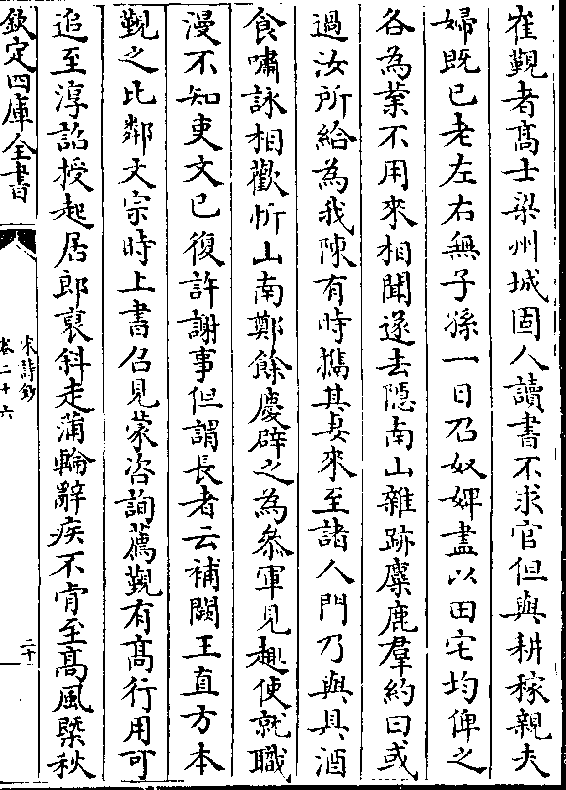 崔覲者高士梁州城固人讀書不求官但與耕稼親夫
婦既已老左右無子孫一日乃奴婢盡以田宅均俾之
各為業不用來相聞遂去隱南山雜跡麋鹿羣約曰或
過汝所給為我陳有時攜其妻來至諸人門乃與具酒
食嘯詠相歡忻山南鄭餘慶辟之為參軍見趣使就職
漫不知吏文已復許謝事但謂長者云補闕王直方本
覲之比鄰文宗時上書召見蒙咨詢薦覲有高行用可
追至淳詔授起居郎裒斜走蒲輪辭疾不肯至高風槩秋
欽定四庫全書
宋詩鈔
卷二十六
二十